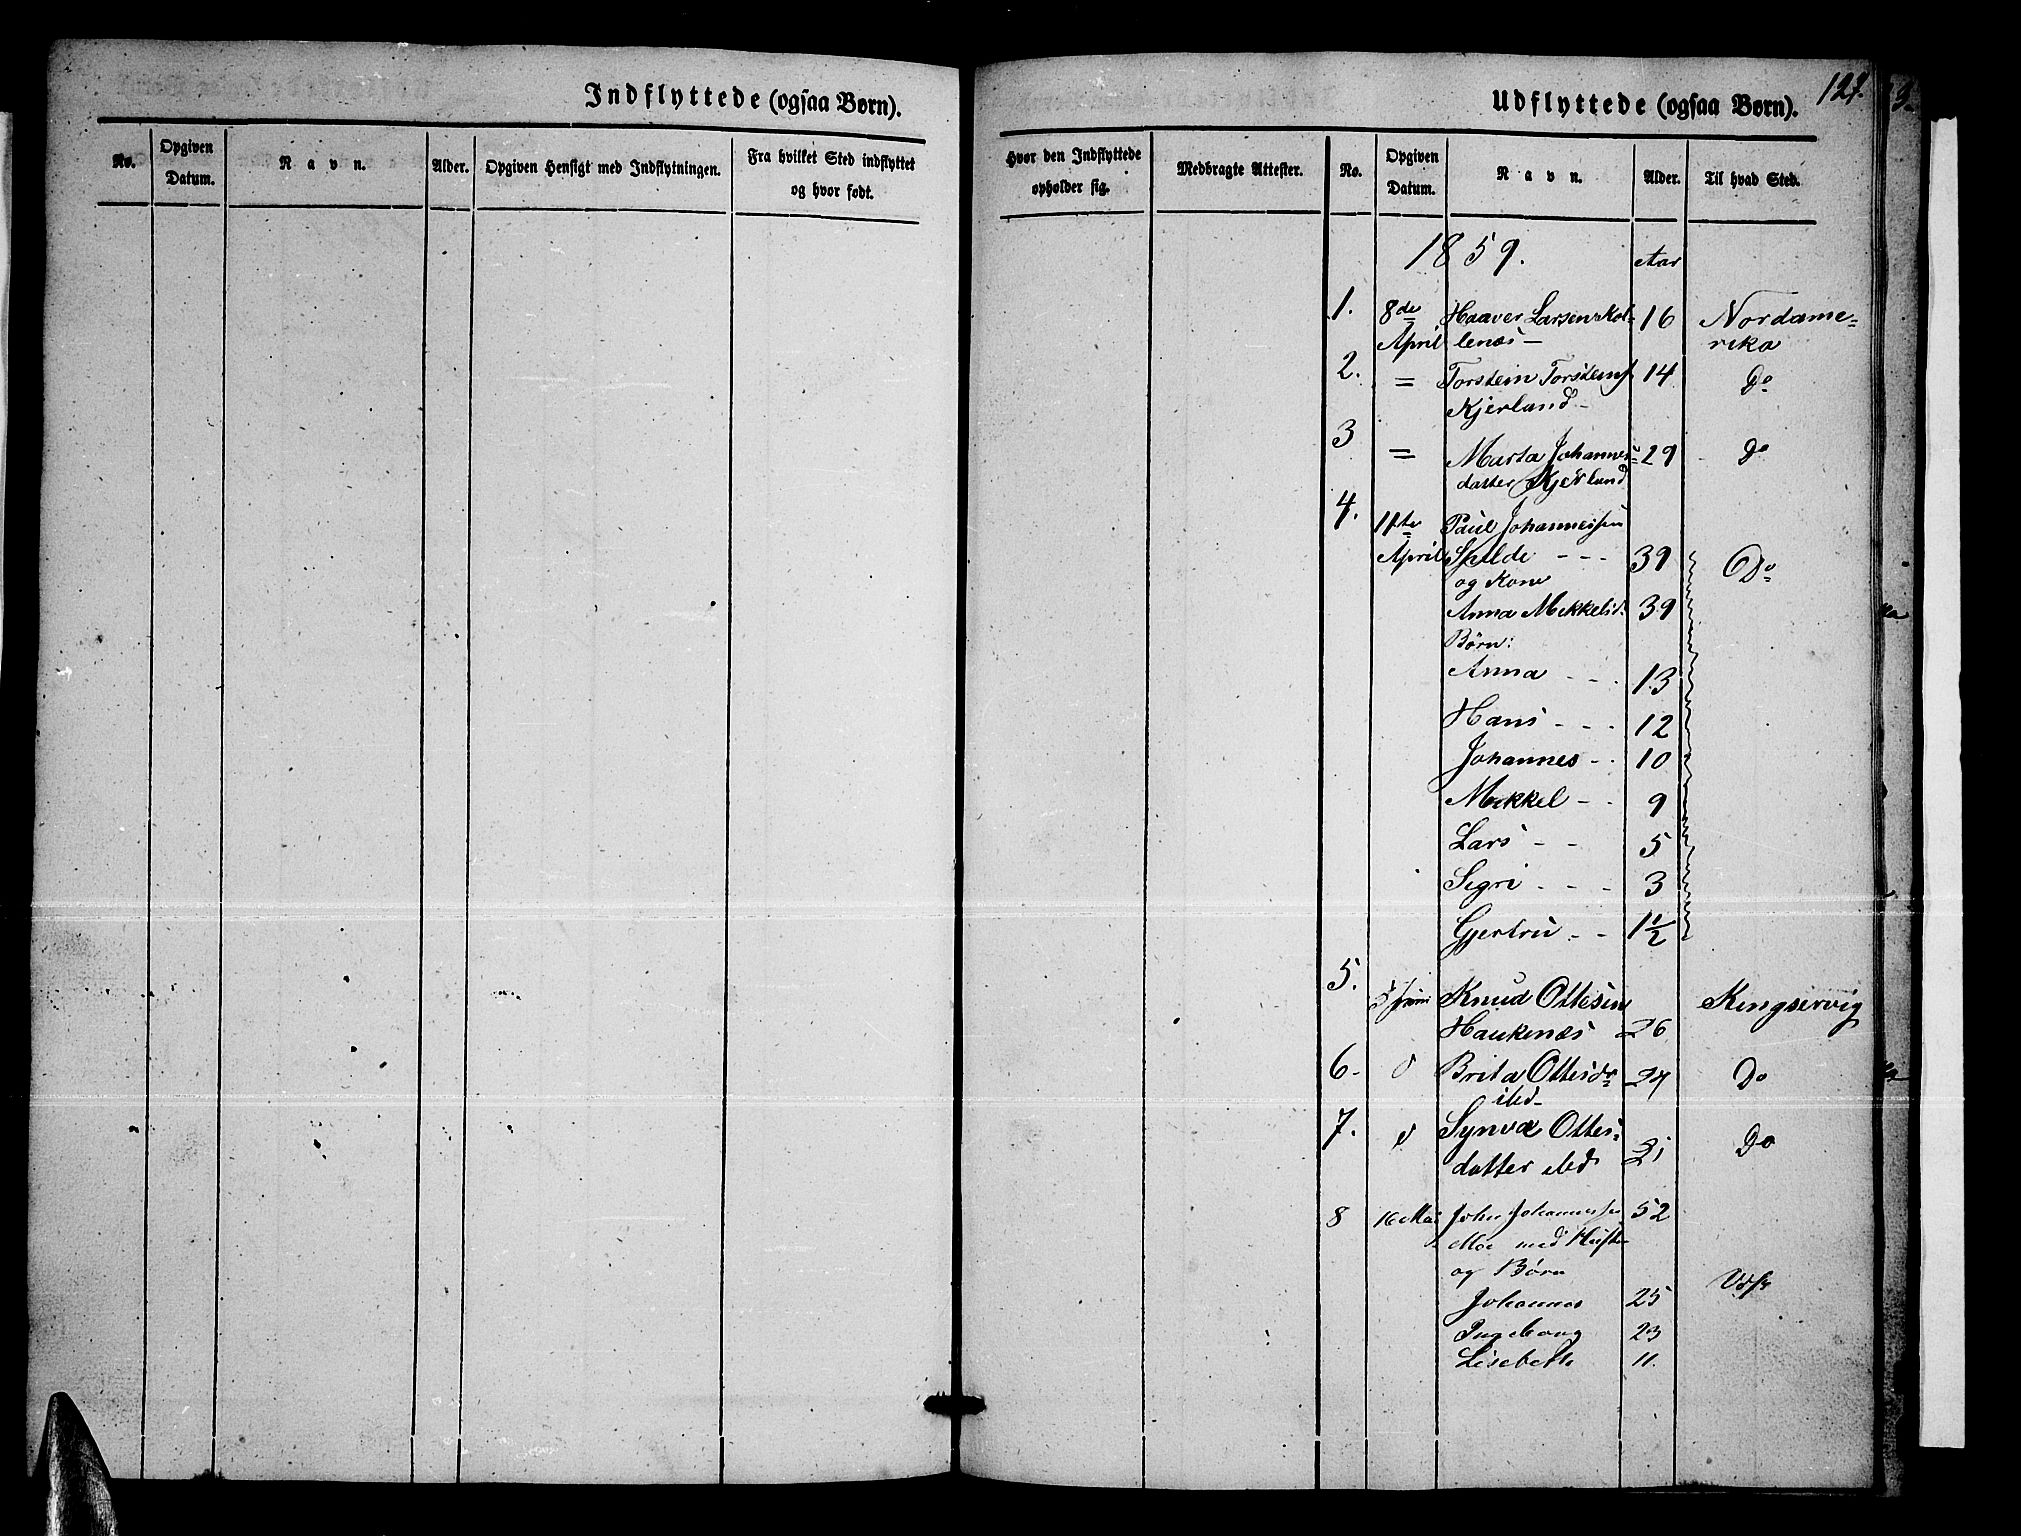 Indflyttede (ogsaa Børn).
No.
Opgiven
Datum.
Navn.
Alder.
Opgiven Hensigt med Indflytningen.
Fra hvilket Sted indflyttet
og hvor født.
127.
Udflyttede (ogsaa Børn).
Hvor den Indflyttede
opholder sig.
Medbragte Attester.
No.
Opgiven
Datum.
Navn.
Alder.
Til hvad Sted.
1859. Aar
1. 8de Haaver Larsen Kol- 16 Nordame=
April lenæs — rika
2. = Torstein Torstens. 14 Do
Kjerland -
3 = Marta Johannes= 29 Do
datter Kjerland
4. 11te Paul Johannessen
April Spilde - - - 39 Do
og Kone
Anna Mikkelsd. 39
Børn:
Anna - - - 13
Hans - - - 12
Johannes - . 10
Mikkel - - 9
Lars - - 5
Sigri - - - 3
Gjertru . - 1½
5. 5 Juni Knud Ottesen Kingservig
Haukenæs 26
6. Brita Ottesdr 24 Do
ibd.
7. Synva Ottes- Do
datter ibd 21
8 16 Mai John Johannessen 52
Moe med Hustr
og Børn
Johannes 25
Ingeborg 23
Lisebeth 11.